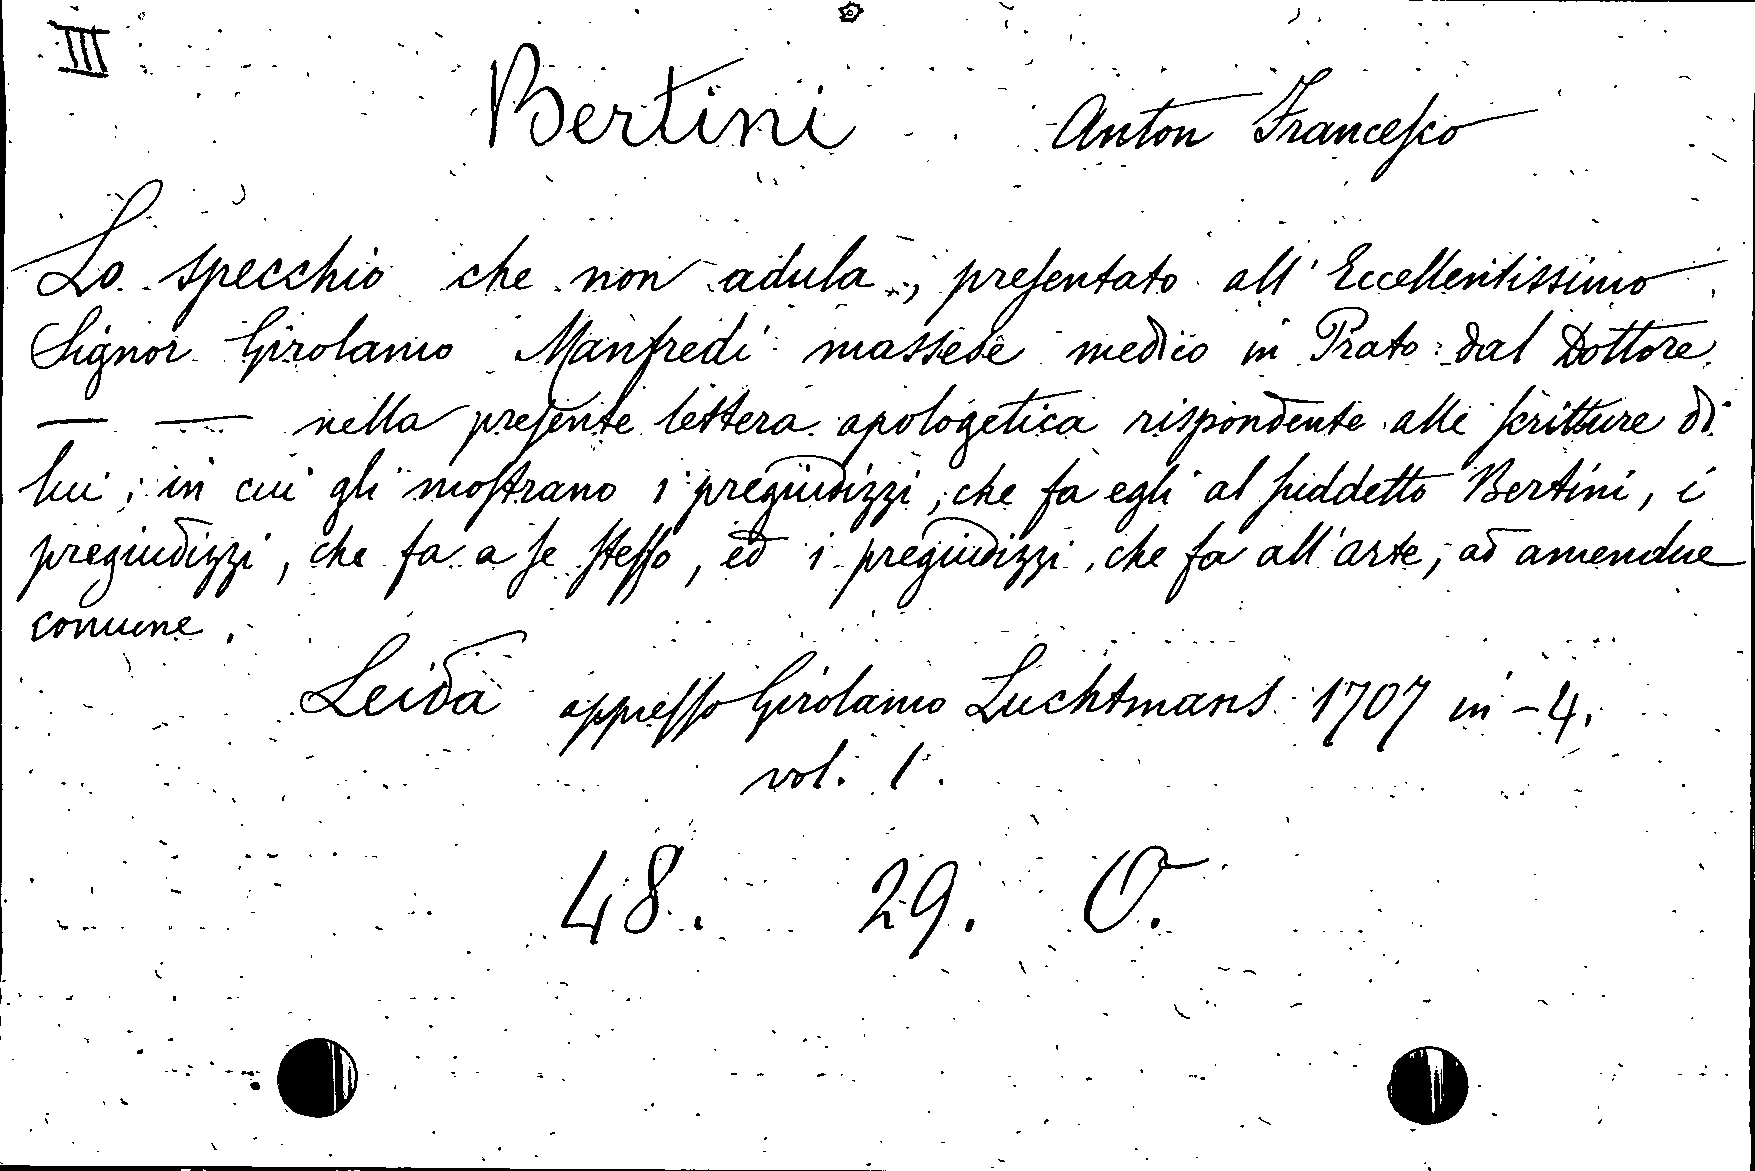 III
Bertini Anton Francesco
Lo specchio che non adula, presentato all' Eccellentissimo
Signor Girolamo Manfredi massese medico in Prato dal Dottore
— — nella presente lettera apologetica rispondente alle scritture di
lui, in cui gli mostrano i pregiudizzi, che fa egli al suddetto Bertini, i
pregiudizzi, che fa a se stesso, ed i pregiudizzi, che fa all'arte, ad amendue
comune.
Leida appresso Girolamo Luchtmans 1707 in-4.
vol. 1.
48. 29. O.